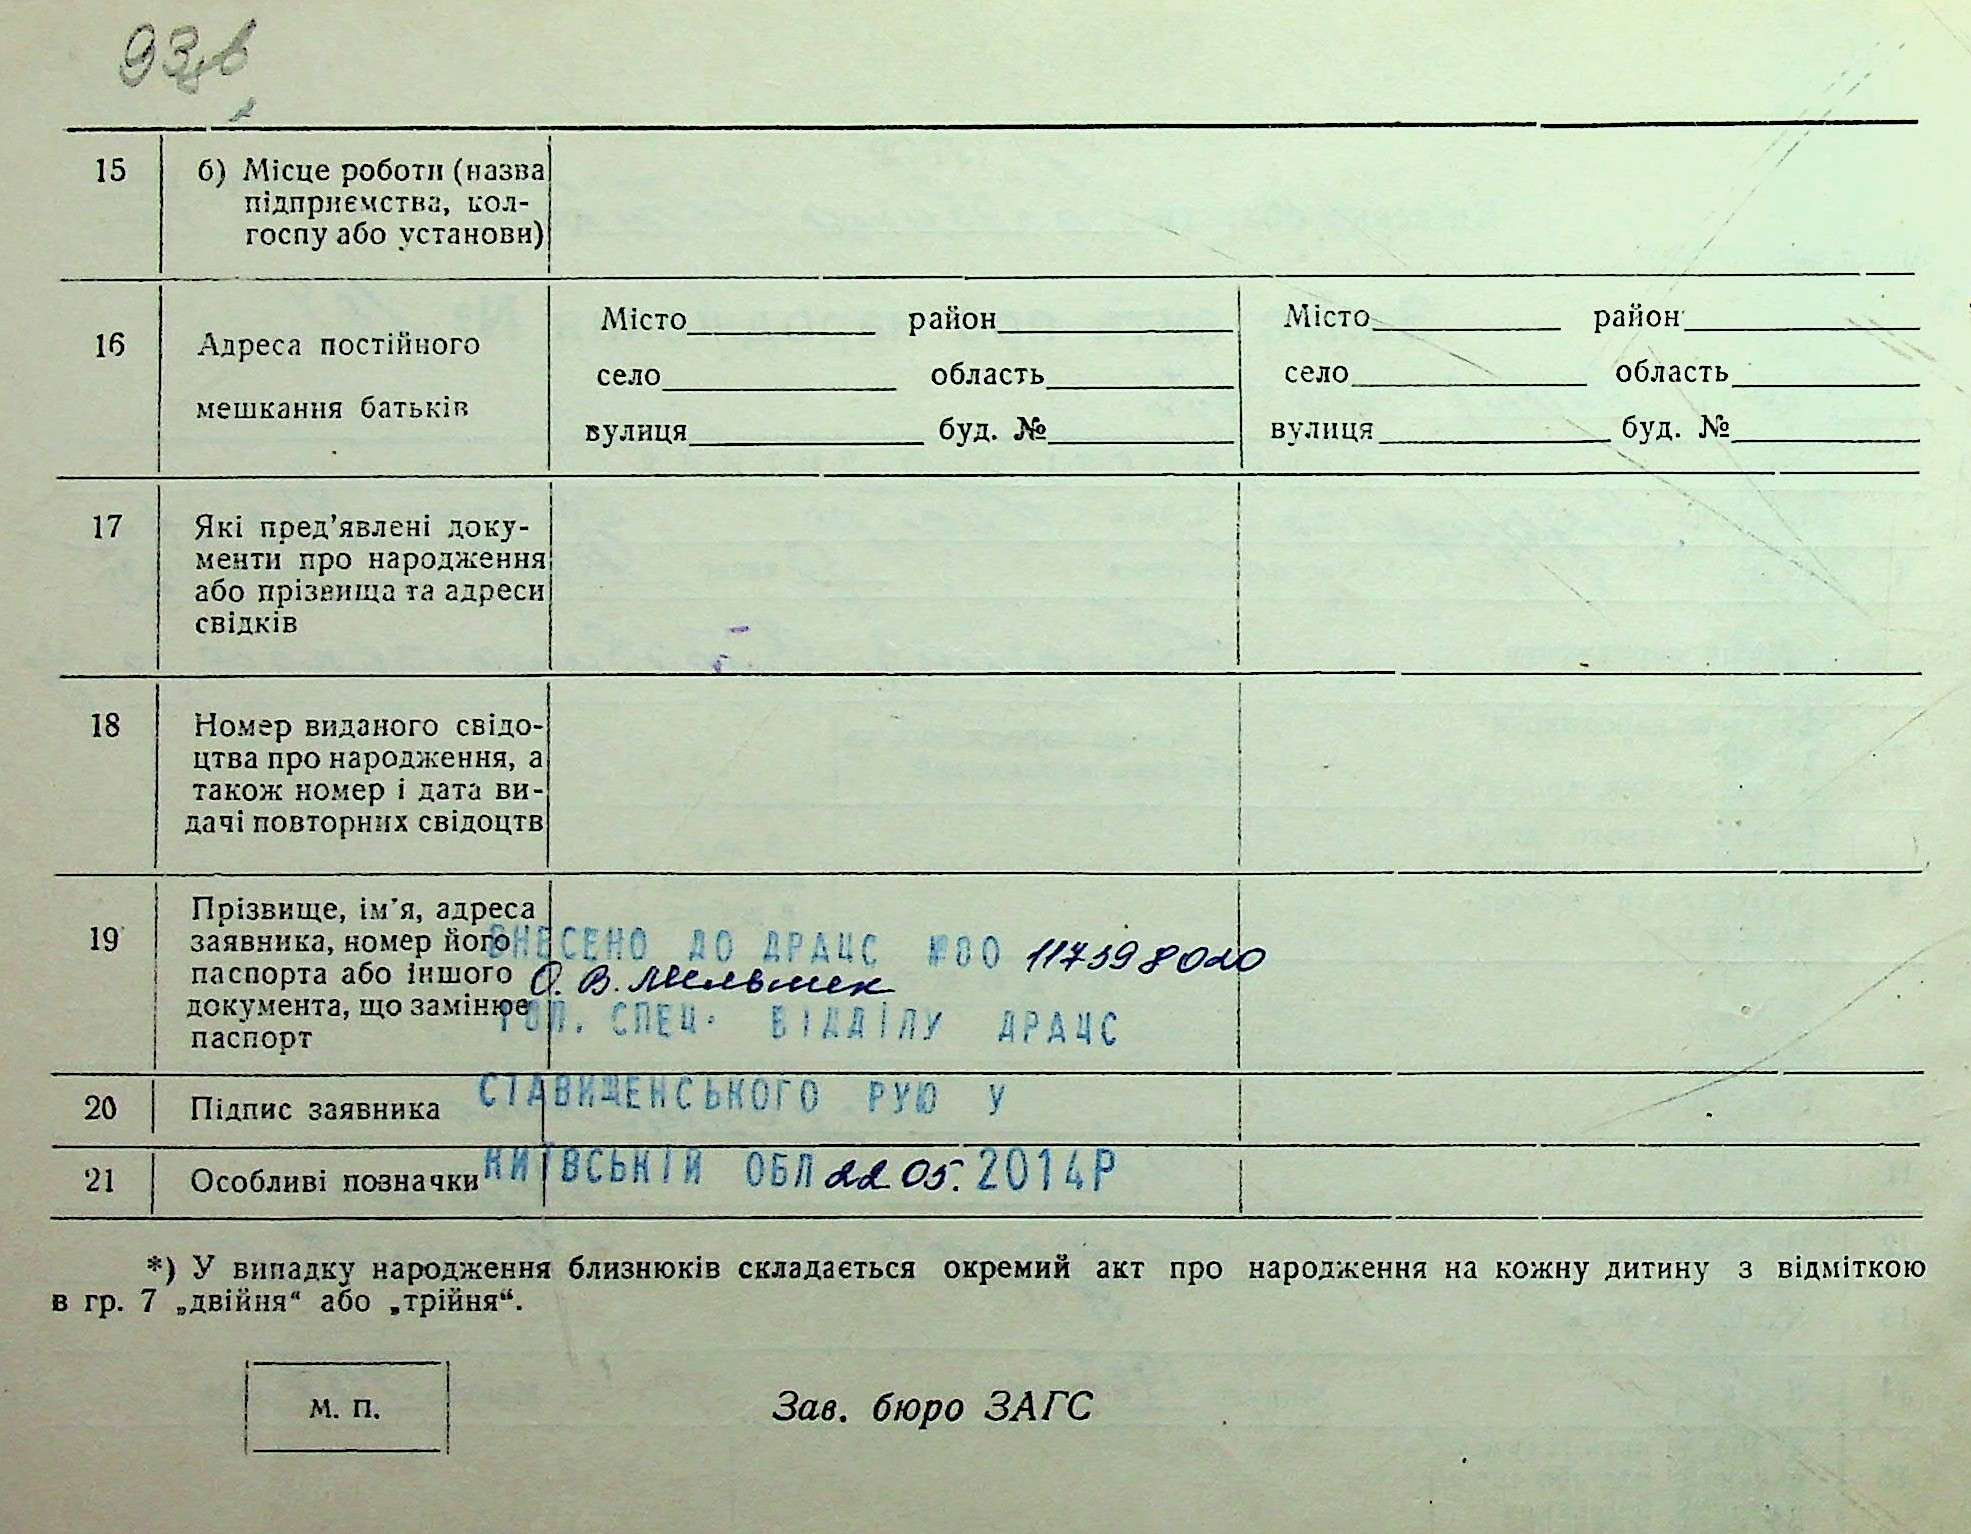 93
15 б) Місце роботи (назва
підприємства, кол-
госпу або установи)
16 Адреса постійного
мешкання батьків
Місто район
село область
вулиця буд. №
Місто район
село область
вулиця буд. №
17 Які пред’явлені доку-
менти про народження
або прізвища та адреси
свідків
18 Номер виданого свідо-
цтва про народження, а
також номер і дата ви-
дачі повторних свідоцтв
19 Прізвище, ім’я, адреса
заявника, номер його
паспорта або іншого
документа, що замінює
паспорт
ВНЕСЕНО ДО ДРАЦС №80
О. В. Мельник
ГОЛ. СПЕЦ. ВІДДІЛУ ДРАЦС
20 Підпис заявника
СТАВИЩЕНСЬКОГО РУЮ У
21 Особливі позначки
КИЇВСЬКІЙ ОБЛ 22 05. 2014Р
*) У випадку народження близнюків складається окремий акт про народження на кожну дитину з відміткою
в гр. 7 „двійня“ або „трійня“.
М. П.
Зав. бюро ЗАГС